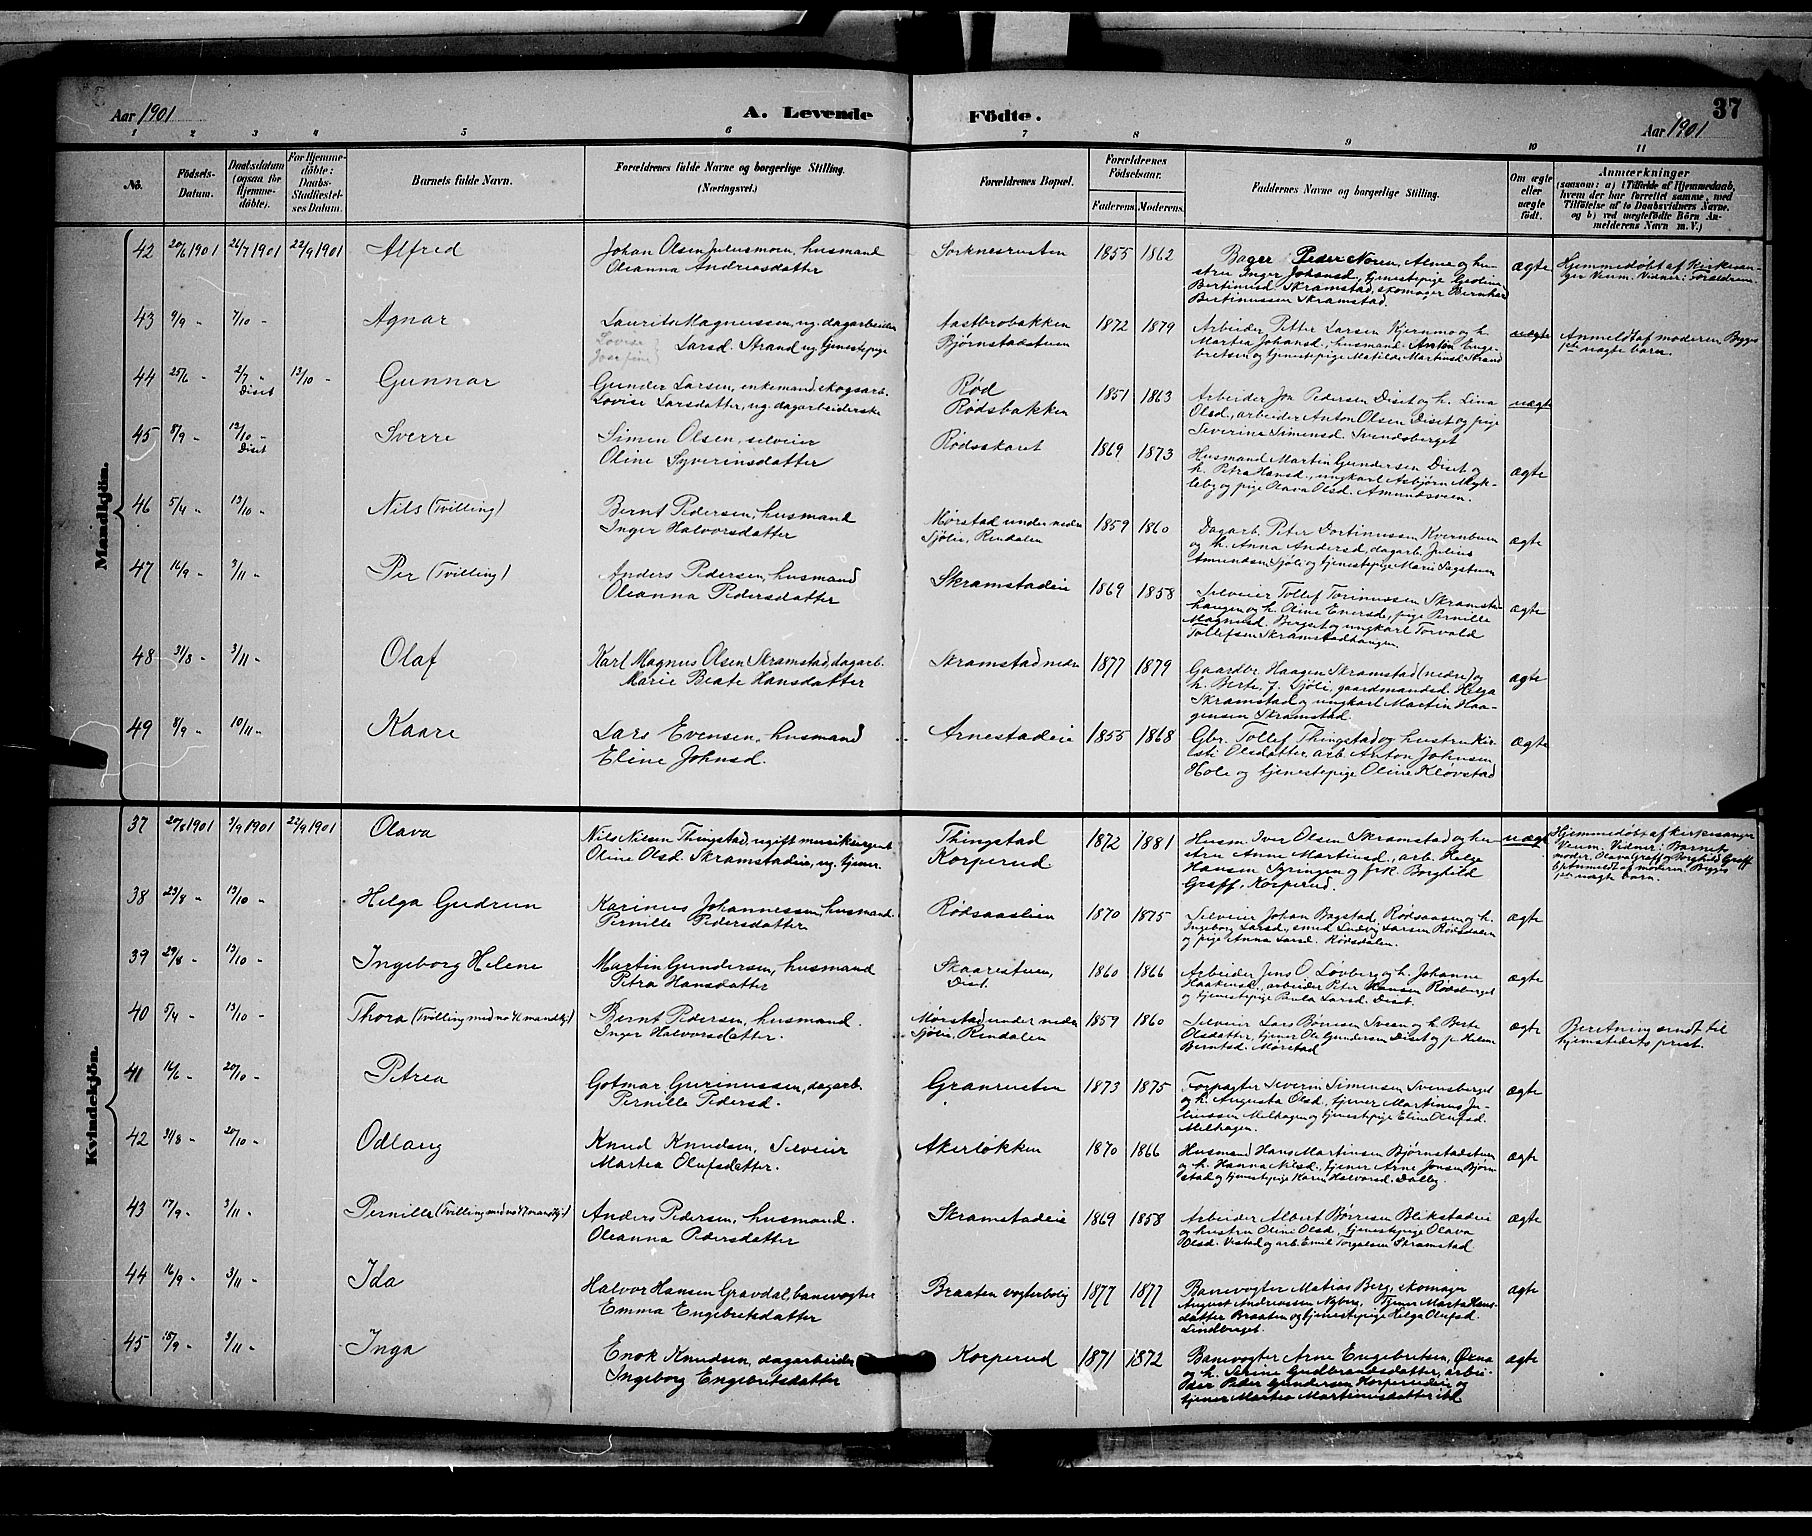 Aar 1901
A. Levende
Födte.
37
Aar 1901
1 2 3 4 5 6 7 8 9 10 11
No.
Födsels-Datum.
Daabsdatum (ogsaa for Hjemme-döbte).
For Hjemme-döbte: Daabs-Stadfæstel-ses Datum.
Barnets fulde Navn.
Forældrenes fulde Navne og borgerlige Stilling. (Næringsvei.)
Forældrenes Bopæl.
Forældrenes Födselsaar.
Faderens. Moderens.
Faddernes Navne og borgerlige Stilling.
Om ægte eller uægte födt.
Anmærkninger
(saasom: a) i Tilfælde af Hjemmedaab, hvem der har forrettet samme, med Tilföielse af to Daabsvidners Navne, og b) ved uægtefödte Börn An-melderens Navn m. V.)
Mandkjön.
42 20/6 1901 26/7 1901 22/9 1901 Alfred
Johan Olsen Juliusmoen, husmand
Oleanna Andreasdatter
Sorknesrusten 1855 1862
Bager Peder Noren, Alme og hu-
stru Inger Johansd., tjenestepige Gjoline
Bertinusd. Skramstad, skomager Bernhar
Bertinussen Skramstad
ægte
Hjemmedøbt af Kirkesan-
ger Veum. Vidner: Forældrene.
43 9/9 - 7/10 - Agnar
Laurits Magnussen, ug. dagarbeider
Lovise Josefine Larsd. Strand ug. tjenestepige
Aastebrobakken
Bjørnstadstuen
1872 1879
Arbeider Petter Larsen Kjernmo og h.
Martea Johansd., husmand Anton Enge-
bretsen og tjenestepige Matilde Martinsd. Strand
uægte
Anmeldt af moderen. Begges
1ste uægte barn.
44 25/6 - 2/7 - Diset 13/10 - Gunnar
Gunder Larsen, enkemand, skogsarb.
Lovise Larsdatter, ug. dagarbeiderske
Rød
Rødsbakken
1851 1863
Arbeider Jon Pedersen Diset og h. Lina
Olsd., arbeider Anton Olsen Diset og pige
Severine Simensd. Svendsberget
uægte
45 8/9 - 13/10 - Diset Sverre
Simen Olsen, selveier
Oline Syverinsdatter
Rødsskaret 1869 1873
Husmand Martin Gundersen Diset og
h. Petra Hansd., ungkarl Asbjørn Myk-
leby og pige Olava Olsd. Amundsveen.
ægte
46 5/4 - 13/10 - Nils (Tvilling)
Bernt Pedersen, husmand
Inger Halvorsdatter
Mørstad under nedre
Sjølie, Rendalen
1859 1860
Dagarb. Peter Dortinussen Kvernbuen
og h. Anna Andersd., dagarb. Julius
Amundsen Sjøli og tjenestepige Marie Sagstuen
ægte
47 16/9 - 3/11 - Per (Tvilling)
Anders Pedersen, husmand
Oleanna Pedersdatter
Skramstadeie 1869 1858
Selveier Tollef Torinussen Skramstad-
haugen og h. Oline Enersd., pige Pernille
Magnusd. Berget og ungkarl Torvald
Tollefsen Skramstadhaugen
ægte
48 31/8 - 3/11 - Olaf
Karl Magnus Olsen Skramstad, dagarb.
Marie Beate Hansdatter
Skramstad nedre 1877 1879
Gaardbr. Haagen Skramstad (nedre) og
h. Berte f. Sjøli, gaardmandsd. Helga
Skramstad og ungkarl Martin Haa-
gensen Skramstad.
ægte
49 8/9 - 10/11 - Kaare
Lars Evensen, husmand
Eline Johnsd.
Arnestadeie 1855 1868
Gbr. Tollef Thingstad og hustru Kir-
sti Olsdatter, arb. Anton Johnsen
Hole og tjenestepige Oline Kløvstad
ægte
Kvindekjön.
37 20/8 1901 3/9 1901 22/9 1901 Olava
Nils Nilsen Thingstad, ugift musiksergent
Oline Olsd. Skramstadeie, ug. tjener.
Thingstad
Korperud.
1872 1881
Husm. Iver Olsen Skramstad og hu-
stru Anne Martinusd., arb. Helge
Hansen Syringen og frk. Borghild
Graff, Korperud.
uægte
Hjemmedøbt af kirkesanger
Veum. Vidner: Barnets
moder, Olava Graff og Borghild Graff
b) Anmeldt af moderen. Begges
1ste uægte barn.
38 23/8 - 13/10 - Helga Gudrun
Karinus Johannessen, husmand
Pernille Pedersdatter
Rødsaaslien 1870 1875
Selveier Johan Bagstad, Rødsaasen og h.
Ingeborg Larsd., smed Ludvig Larsen Rødsdalen
og pige Anna Larsd. Rødsdalen.
ægte
39 29/8 - 13/10 - Ingeborg Helene
Martin Gundersen, husmand
Petra Hansdatter
Skaarestuen,
Dist.
1860 1866
Arbeider Jens O. Løvberg og h. Johanne
Haakensd., arbeider Peter Hansen Rødsberget
og tjenestepige Paula Larsd. Dist.
ægte
40 5/4 - 13/10 - Thora (Tvilling med no 46 mandkj.)
Bernt Pedersen, husmand.
Inger Halvorsdatter.
Mørstad under nedre
Sjølie, Rendalen
1859 1860
Selveier Lars Bønsen Sveen og h. Berte
Olsdatter, tjener Ole Gundersen Diset og p. Helene
Berntsd. Mørstad
ægte
Beretning sendt til
hjemstedets prest.
41 16/6 - 20/10 - Petrea
Gotmar Gurinussen, dagarb.
Pernille Pedersd.
Granrusten 1873 1875
Forpagter Severin Simensen Svensberget
og h. Augusta Olsd., tjener Martinus Ju-
liussen Melhagen og tjenestepige Eline Olufsd.
Melhagen.
ægte
42 31/8 - 20/10 - Odlaug
Knud Knudsen, Selveier
Martea Olufsdatter.
Akerløkken 1870 1866
Husmand Hans Martinsen Bjørnstadstuen
og h. Hanna Nilsd., tjener Arne Jonsen Bjørn-
stad og tjenestepige Karen Halvorsd. Dalby.
ægte
43 17/9 - 3/11 - Pernille (Tvilling med no 47 mandkj.)
Anders Pedersen, husmand.
Oleanna Pedersdatter
Skramstadeie 1869 1858
Arbeider Albert Børresen Blikstadeie
og hustru Oline Olsd., tjenestepige Olava
Olsd. Vestad og arb. Emil Torgalsen Skramstad
ægte
44 16/9 - 3/11 - Ida
Halvor Hansen Gravdal, banevogter
Emma Engebretsdatter
Braaten vogterbolig 1877 1877
Banevogter Matias Berg, skomager
August Andreassen Nyberg, Tjener Marta Hans-
datter Braaten og tjenestepige Helga Olufsd.
Lindberget.
ægte
45 15/9 - 3/11 - Inga
Enok Knudsen, dagarbeider
Ingeborg Engebretsdatter
Korperud 1871 1872
Banevogter Arne Engebretsen, Øxna
og h. Serine Gudbrandsdatter, arbei-
der Peder Gundersen Korperudeie og
tjener Martea Martinusdatter ibd
ægte